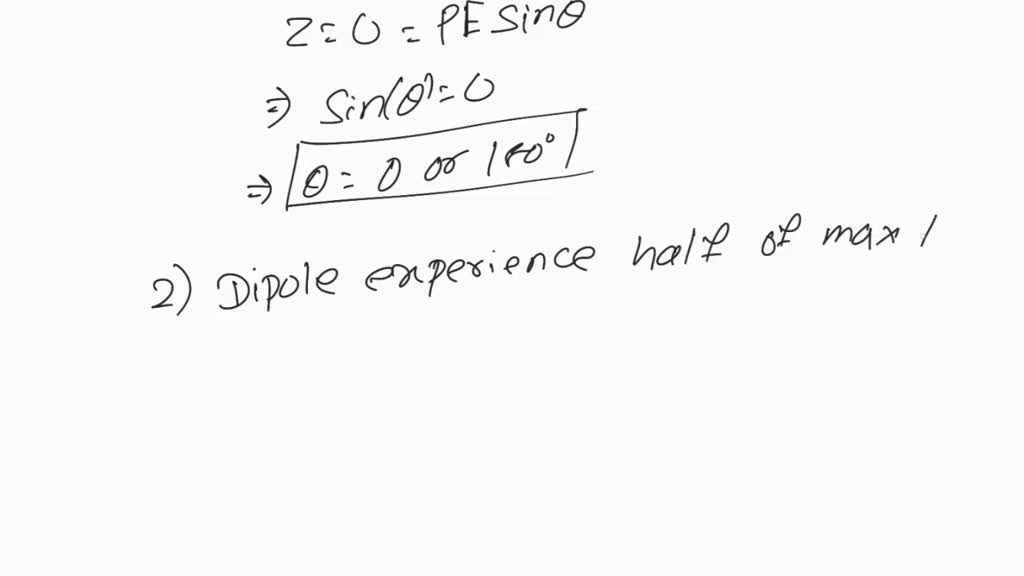 Z = 0 = PE Sinθ
⇒ Sin(θ) = 0
⇒ θ = 0 or 180°
2) Dipole experience half of max